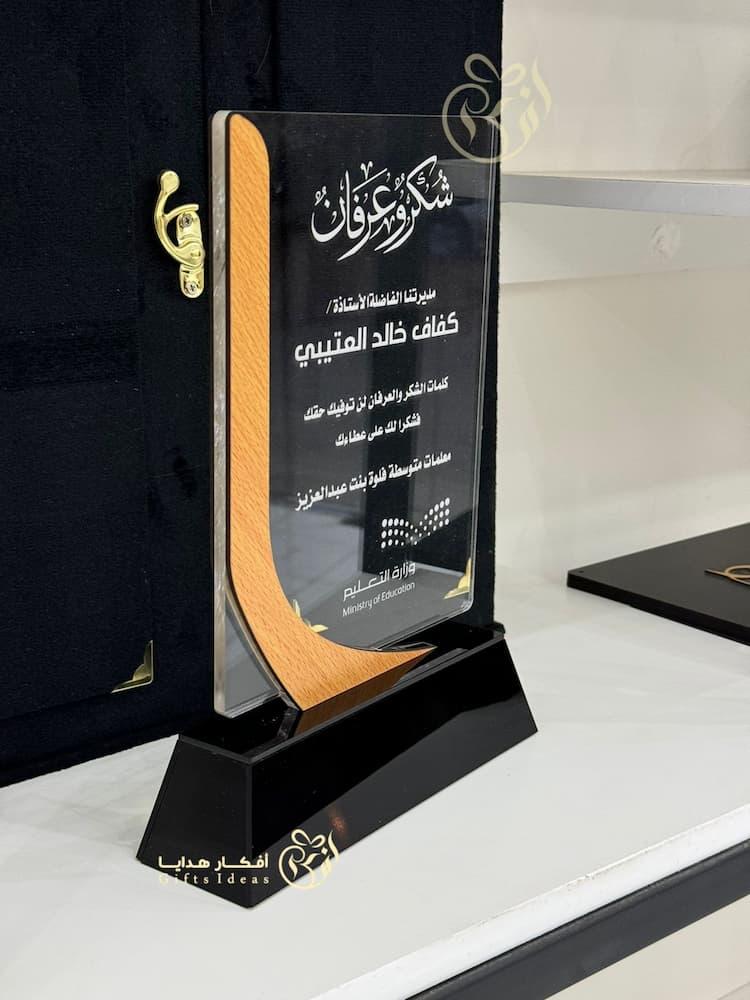 شكر وعرفان
مديرتنا الفاضلة الأستاذة /
كفاف خالد العتيبي
كلمات الشكر والعرفان لن توفيك حقك
فشكرا لك على عطاءك
معلمات متوسطة فلوة بنت عبدالعزيز
وزارة التعليم
Ministry of Education
أفكار هدايا
Gifts Ideas